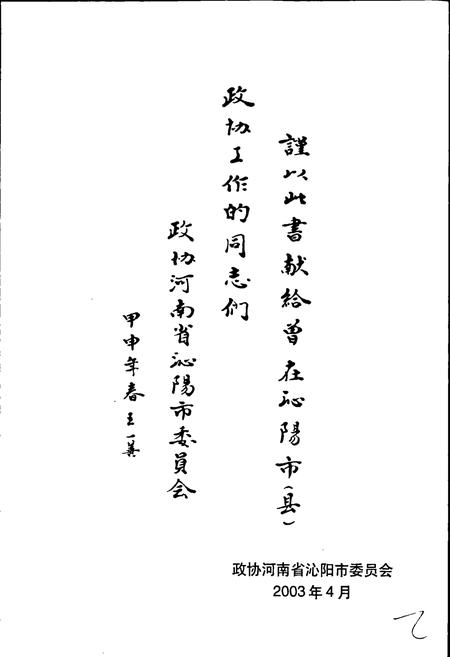 謹以此書献給曾在沁陽市(县)
政协工作的同志们
政协河南省沁陽市委員会
甲申年春王一兵
政协河南省沁阳市委员会
2003年4月